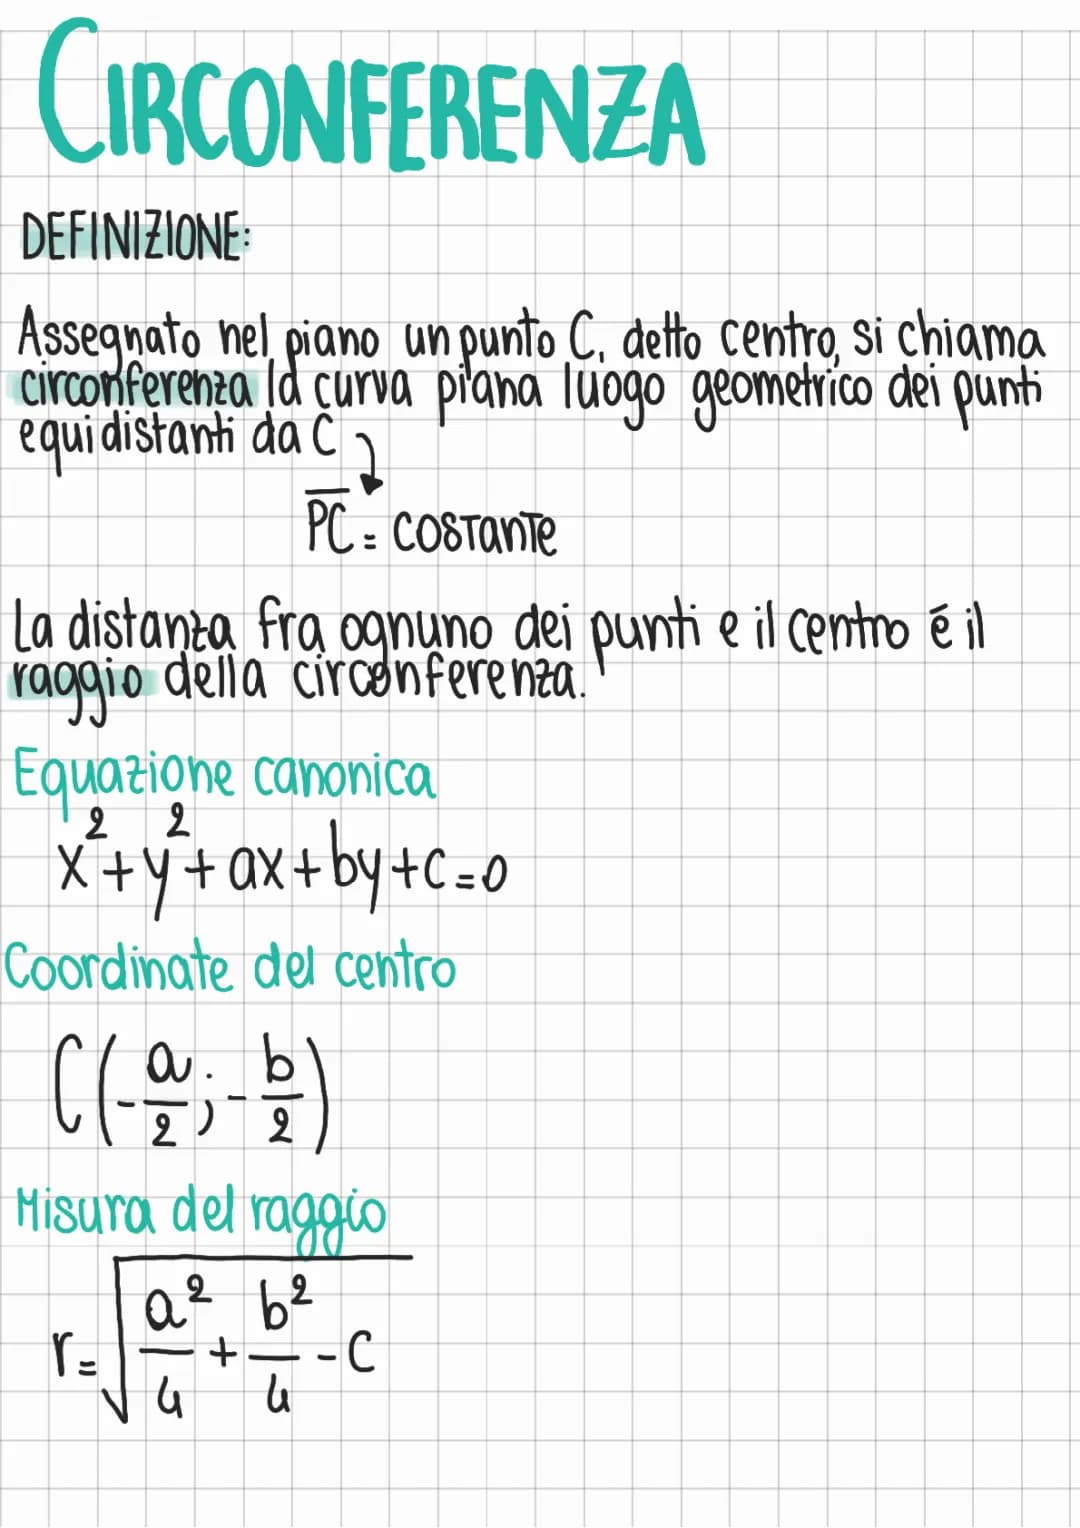 CIRCONFERENZA
DEFINIZIONE:
Assegnato nel piano un punto C, detto centro, si chiama
circonferenza la curva piana luogo geometrico dei punti
equidistanti da C
P̅C̅ = COSTANTE
La distanza fra ognuno dei punti e il centro é il
raggio della circonferenza.
Equazione canonica
x²+y²+ax+by+c=0
Coordinate del centro
C(-a/2;-b/2)
Misura del raggio
r=√(a²/4+b²/4-c)